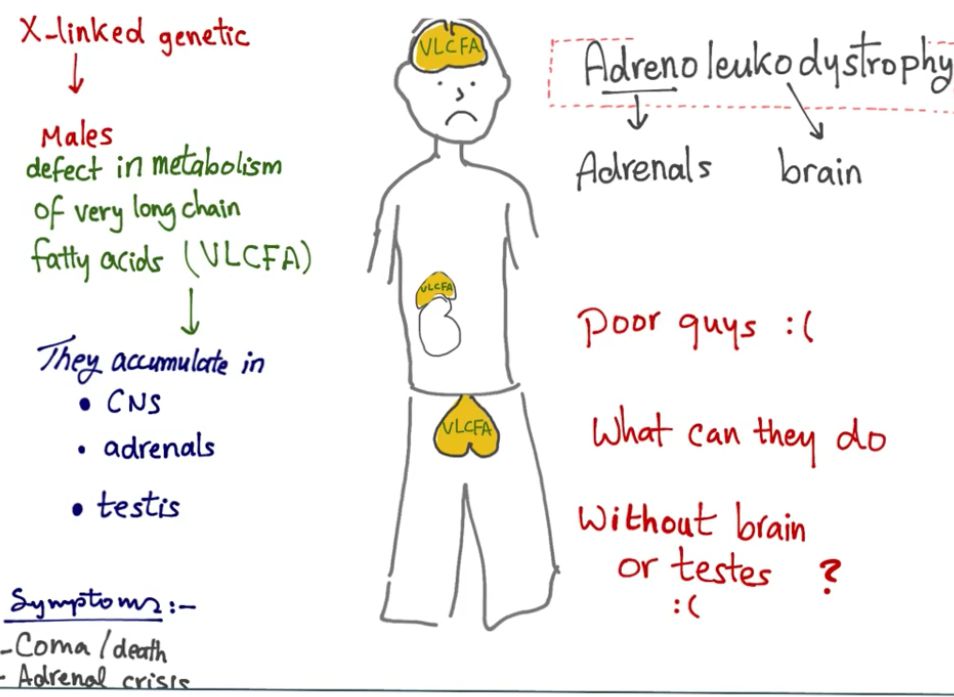 X-linked genetic
Males
defect in metabolism
of very long chain
fatty acids (VLCFA)
They accumulate in
• CNS
• adrenals
• testis
Symptoms:-
- Coma / death
- Adrenal crisis
VLCFA
VLCFA
VLCFA
Adrenoleukodystrophy
Adrenals brain
Poor guys :(
What can they do
Without brain
or testes ?
:(